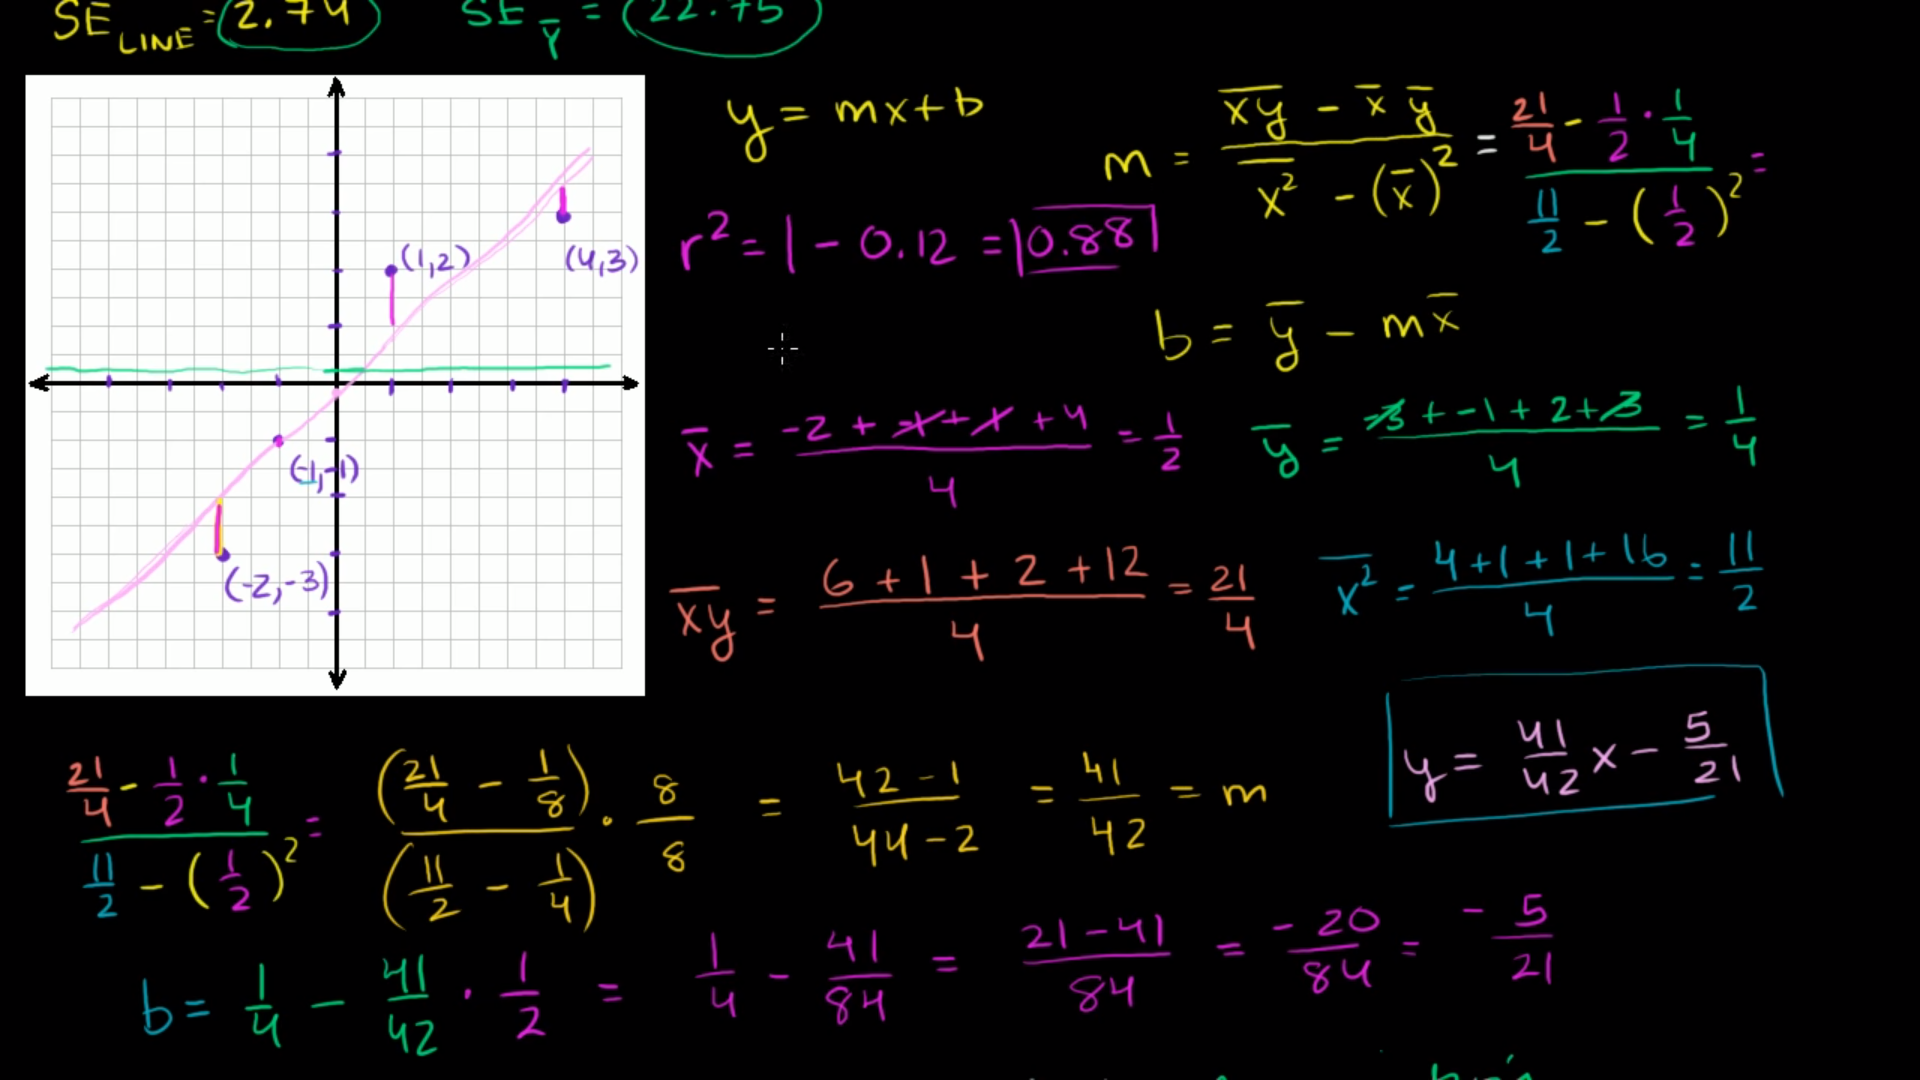 SE LINE = 2.74 SE Y̅ = 22.75
y = mx + b
m = (x̅y̅ - x̅ y̅)/(x̅² - (x̅)²) = (21/4 - 1/2 · 1/4)/(11/2 - (1/2)²) =
r² = 1 - 0.12 = 0.88
b = y̅ - mx̅
(1,2)
(4,3)
(-1,-1)
(-2,-3)
x̅ = (-2 + -1 + 1 + 4)/4 = 1/2
y̅ = (-3 + -1 + 2 + 3)/4 = 1/4
x̅y̅ = (6 + 1 + 2 + 12)/4 = 21/4
x̅² = (4 + 1 + 1 + 16)/4 = 11/2
y = 41/42 x - 5/21
(21/4 - 1/2 · 1/4)/(11/2 - (1/2)²) = (21/4 - 1/8)/(11/2 - 1/4) · 8/8 = (42 - 1)/(44 - 2) = 41/42 = m
b = 1/4 - 41/42 · 1/2 = 1/4 - 41/84 = (21 - 41)/84 = -20/84 = -5/21